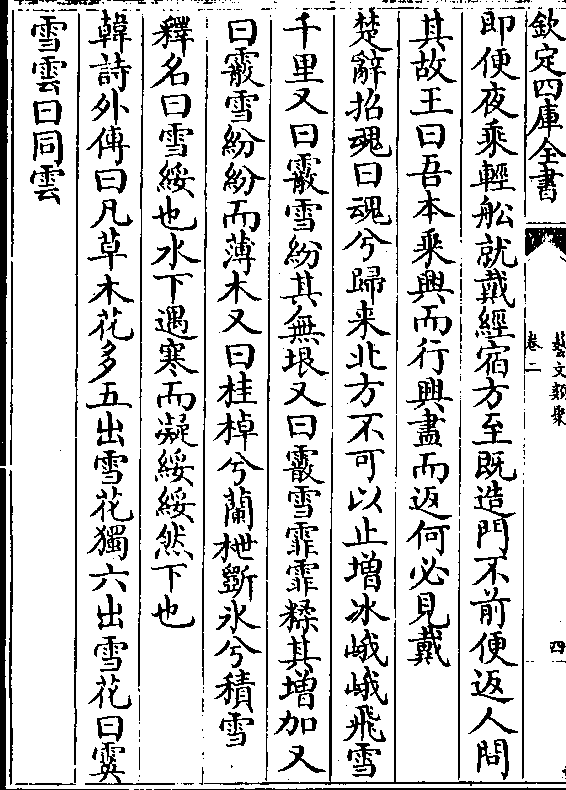 欽定四庫全書
藝文類聚
卷二
四
即便夜乘輕船就戴經宿方至既造門不前便返人問
其故王曰吾本乘興而行興盡而返何必見戴
楚辭招魂曰魂兮歸来北方不可以止增冰峨峨飛雪
千里又曰霰雪紛其無垠又曰霰雪霏霏糅其增加又
曰霰雪紛紛而薄木又曰桂棹兮蘭枻斲氷兮積雪
釋名曰雪綏也水下遇寒而凝綏綏然下也
韓詩外傳曰凡草木花多五出雪花獨六出雪花曰霙
雪雲曰同雲